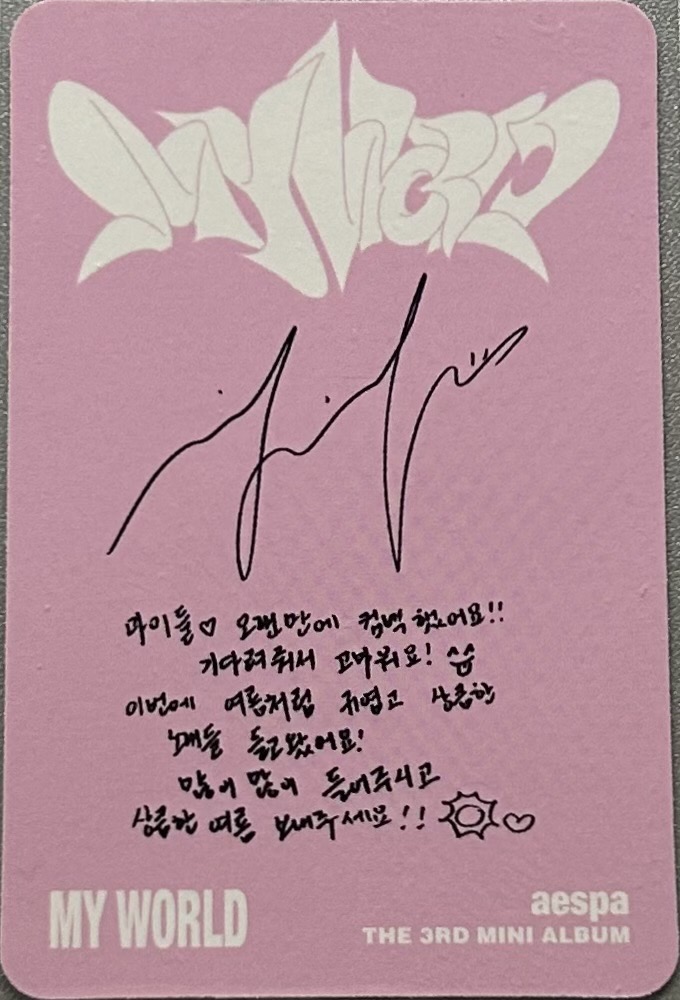 MY WORLD
마이들♡ 오랜만에 컴백했어요!!
기다려줘서 고마워요! ^^
이번에 여름처럼 귀엽고 상큼한
노래들 들고왔어요!
많이 많이 들어주시고
상큼한 여름 보내주세요!! ♡
MY WORLD
aespa
THE 3RD MINI ALBUM